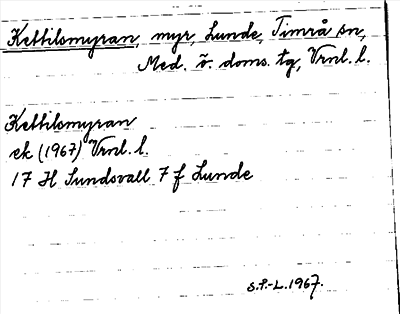 Kettilsmyran, myr, Lunde, Timrå sn,
Med. ö. doms. tg, Vrnl. l.
Kettilsmyran
ek (1967) Vrnl. l.
17 H Sundsvall 7 f Lunde
S.P.-L. 1967.